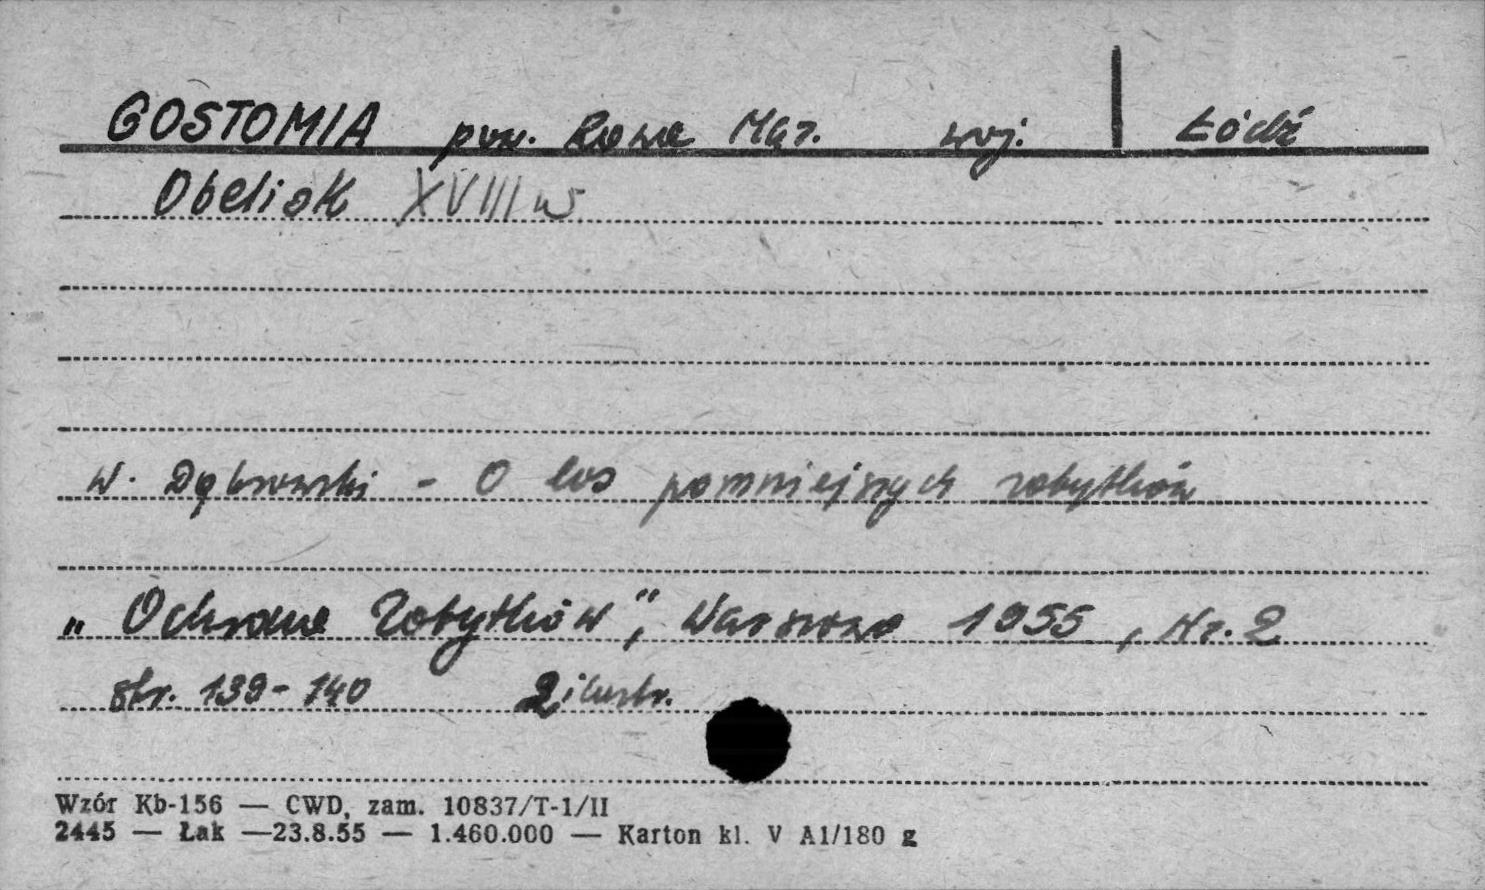 GOSTOMIA pow. Rawa Maz. woj. Łódź
Obelisk XVIII w
W. Dąbrowski - O los pomniejszych zabytków
„Ochrona Zabytków", Warszawa 1955, Nr. 2
str. 139-140 2 ilustr.
Wzór Kb-156 — CWD, zam. 10837/T-1/II
2445 — Łak —23.8.55 — 1.460.000 — Karton kl. V A1/180 g